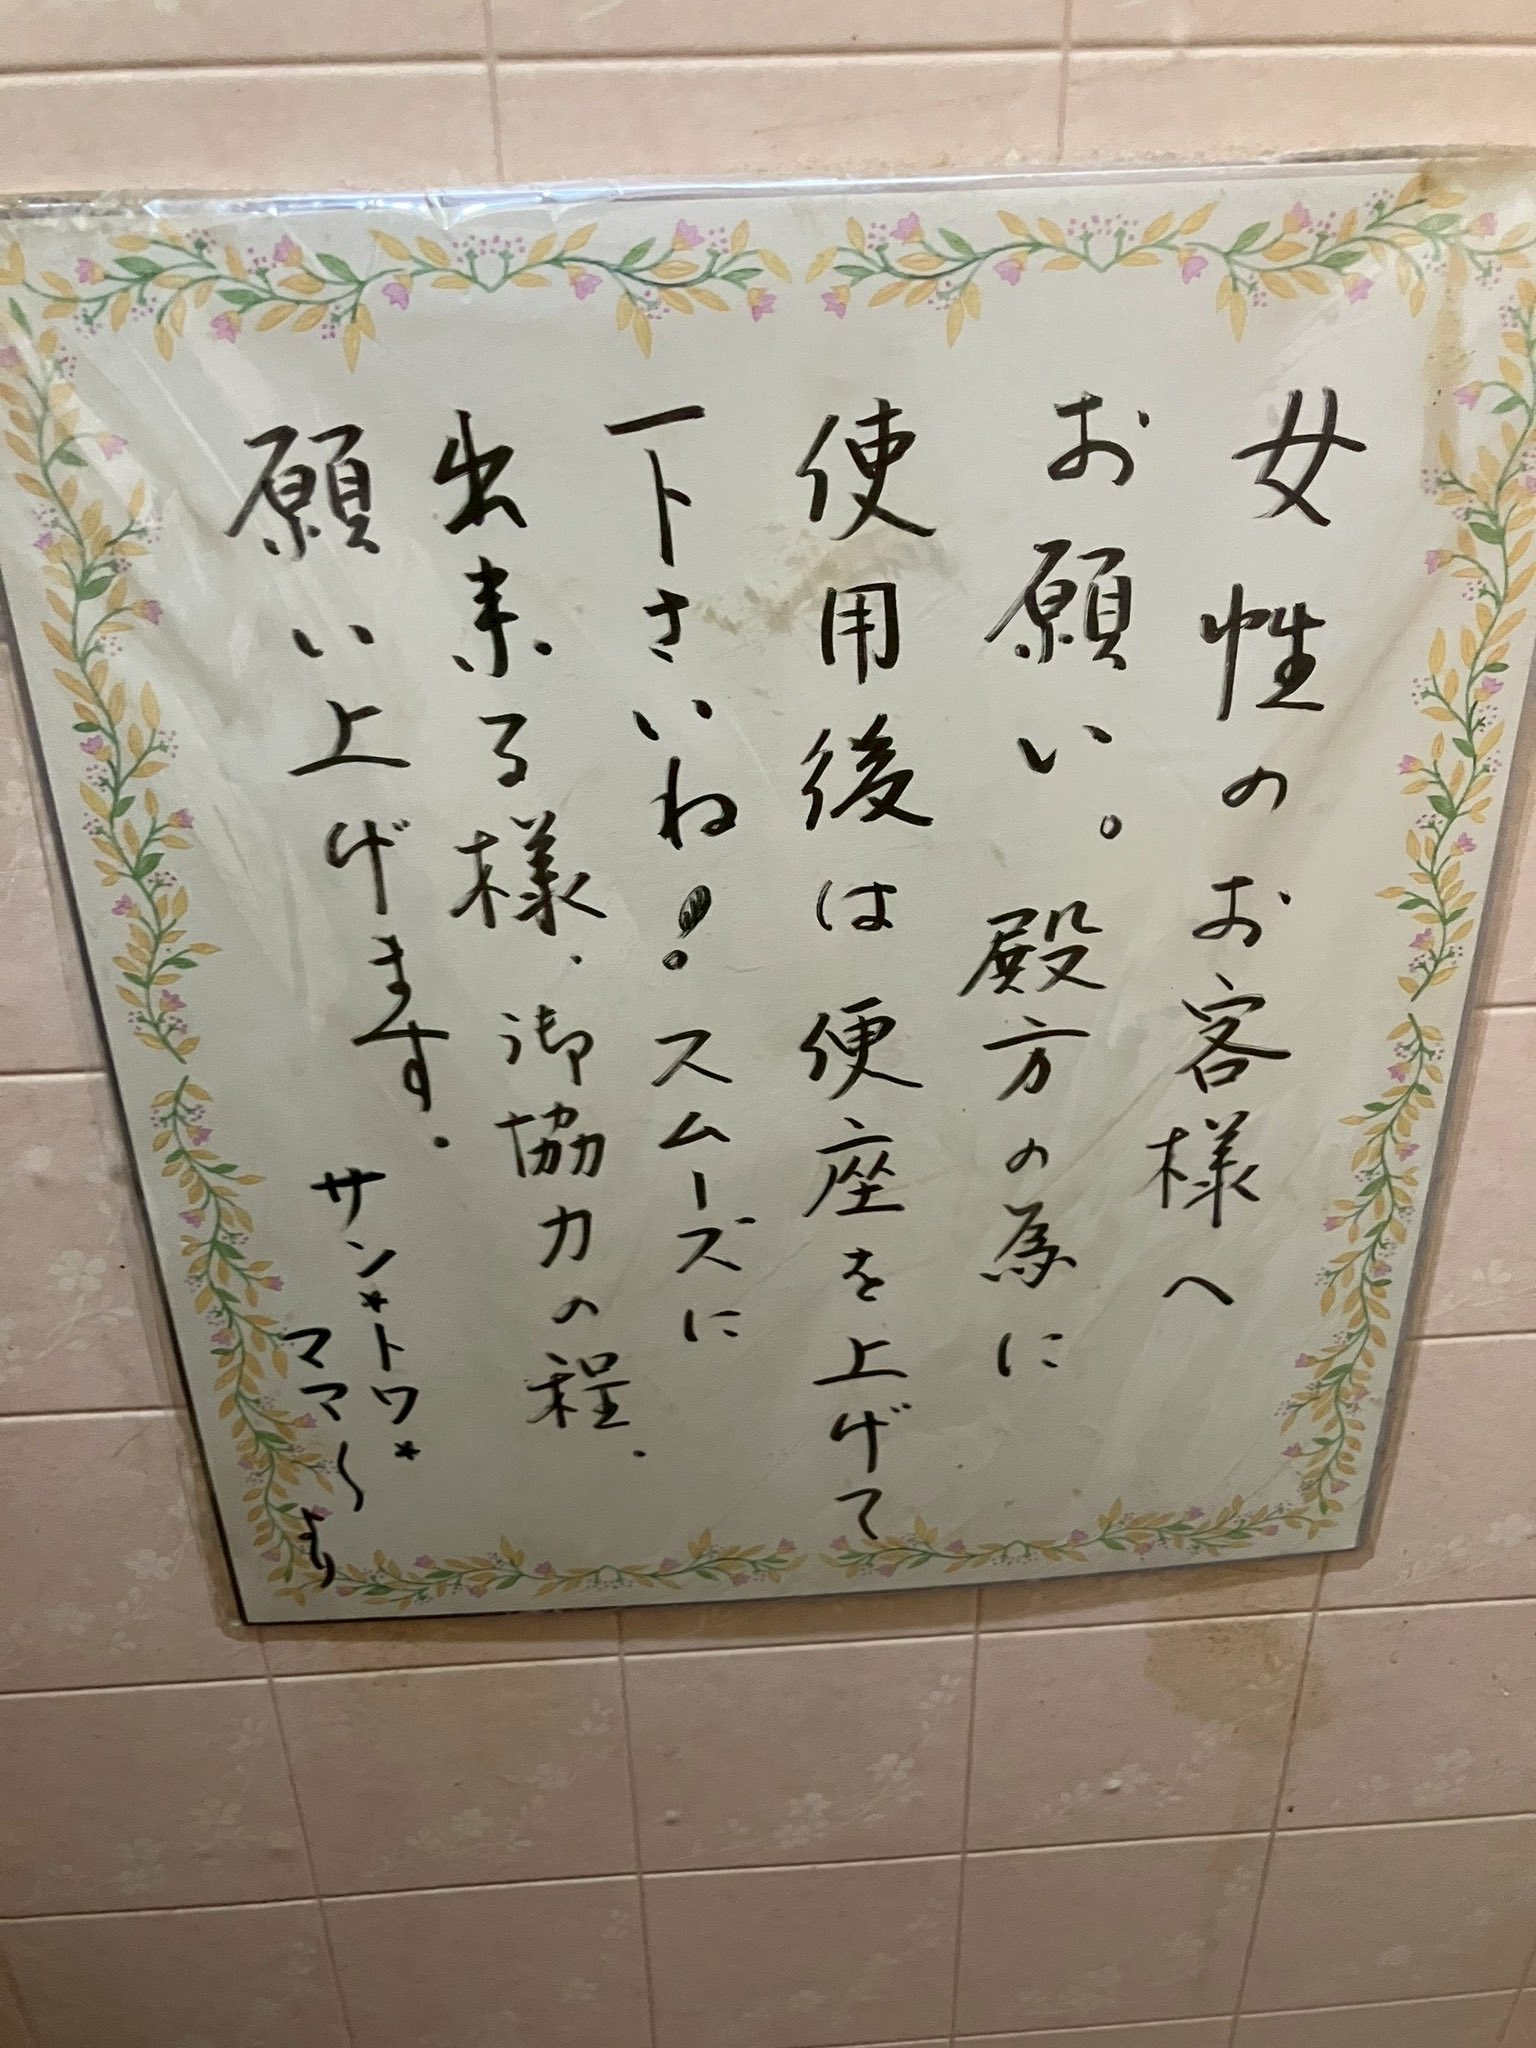 女性のお客様へ
お願い。殿方の為に
使用後は便座を上げて
下さいね!スムーズに
出来る様、御協力の程、
願い上げます。
サン*トワ*
ママ〜より